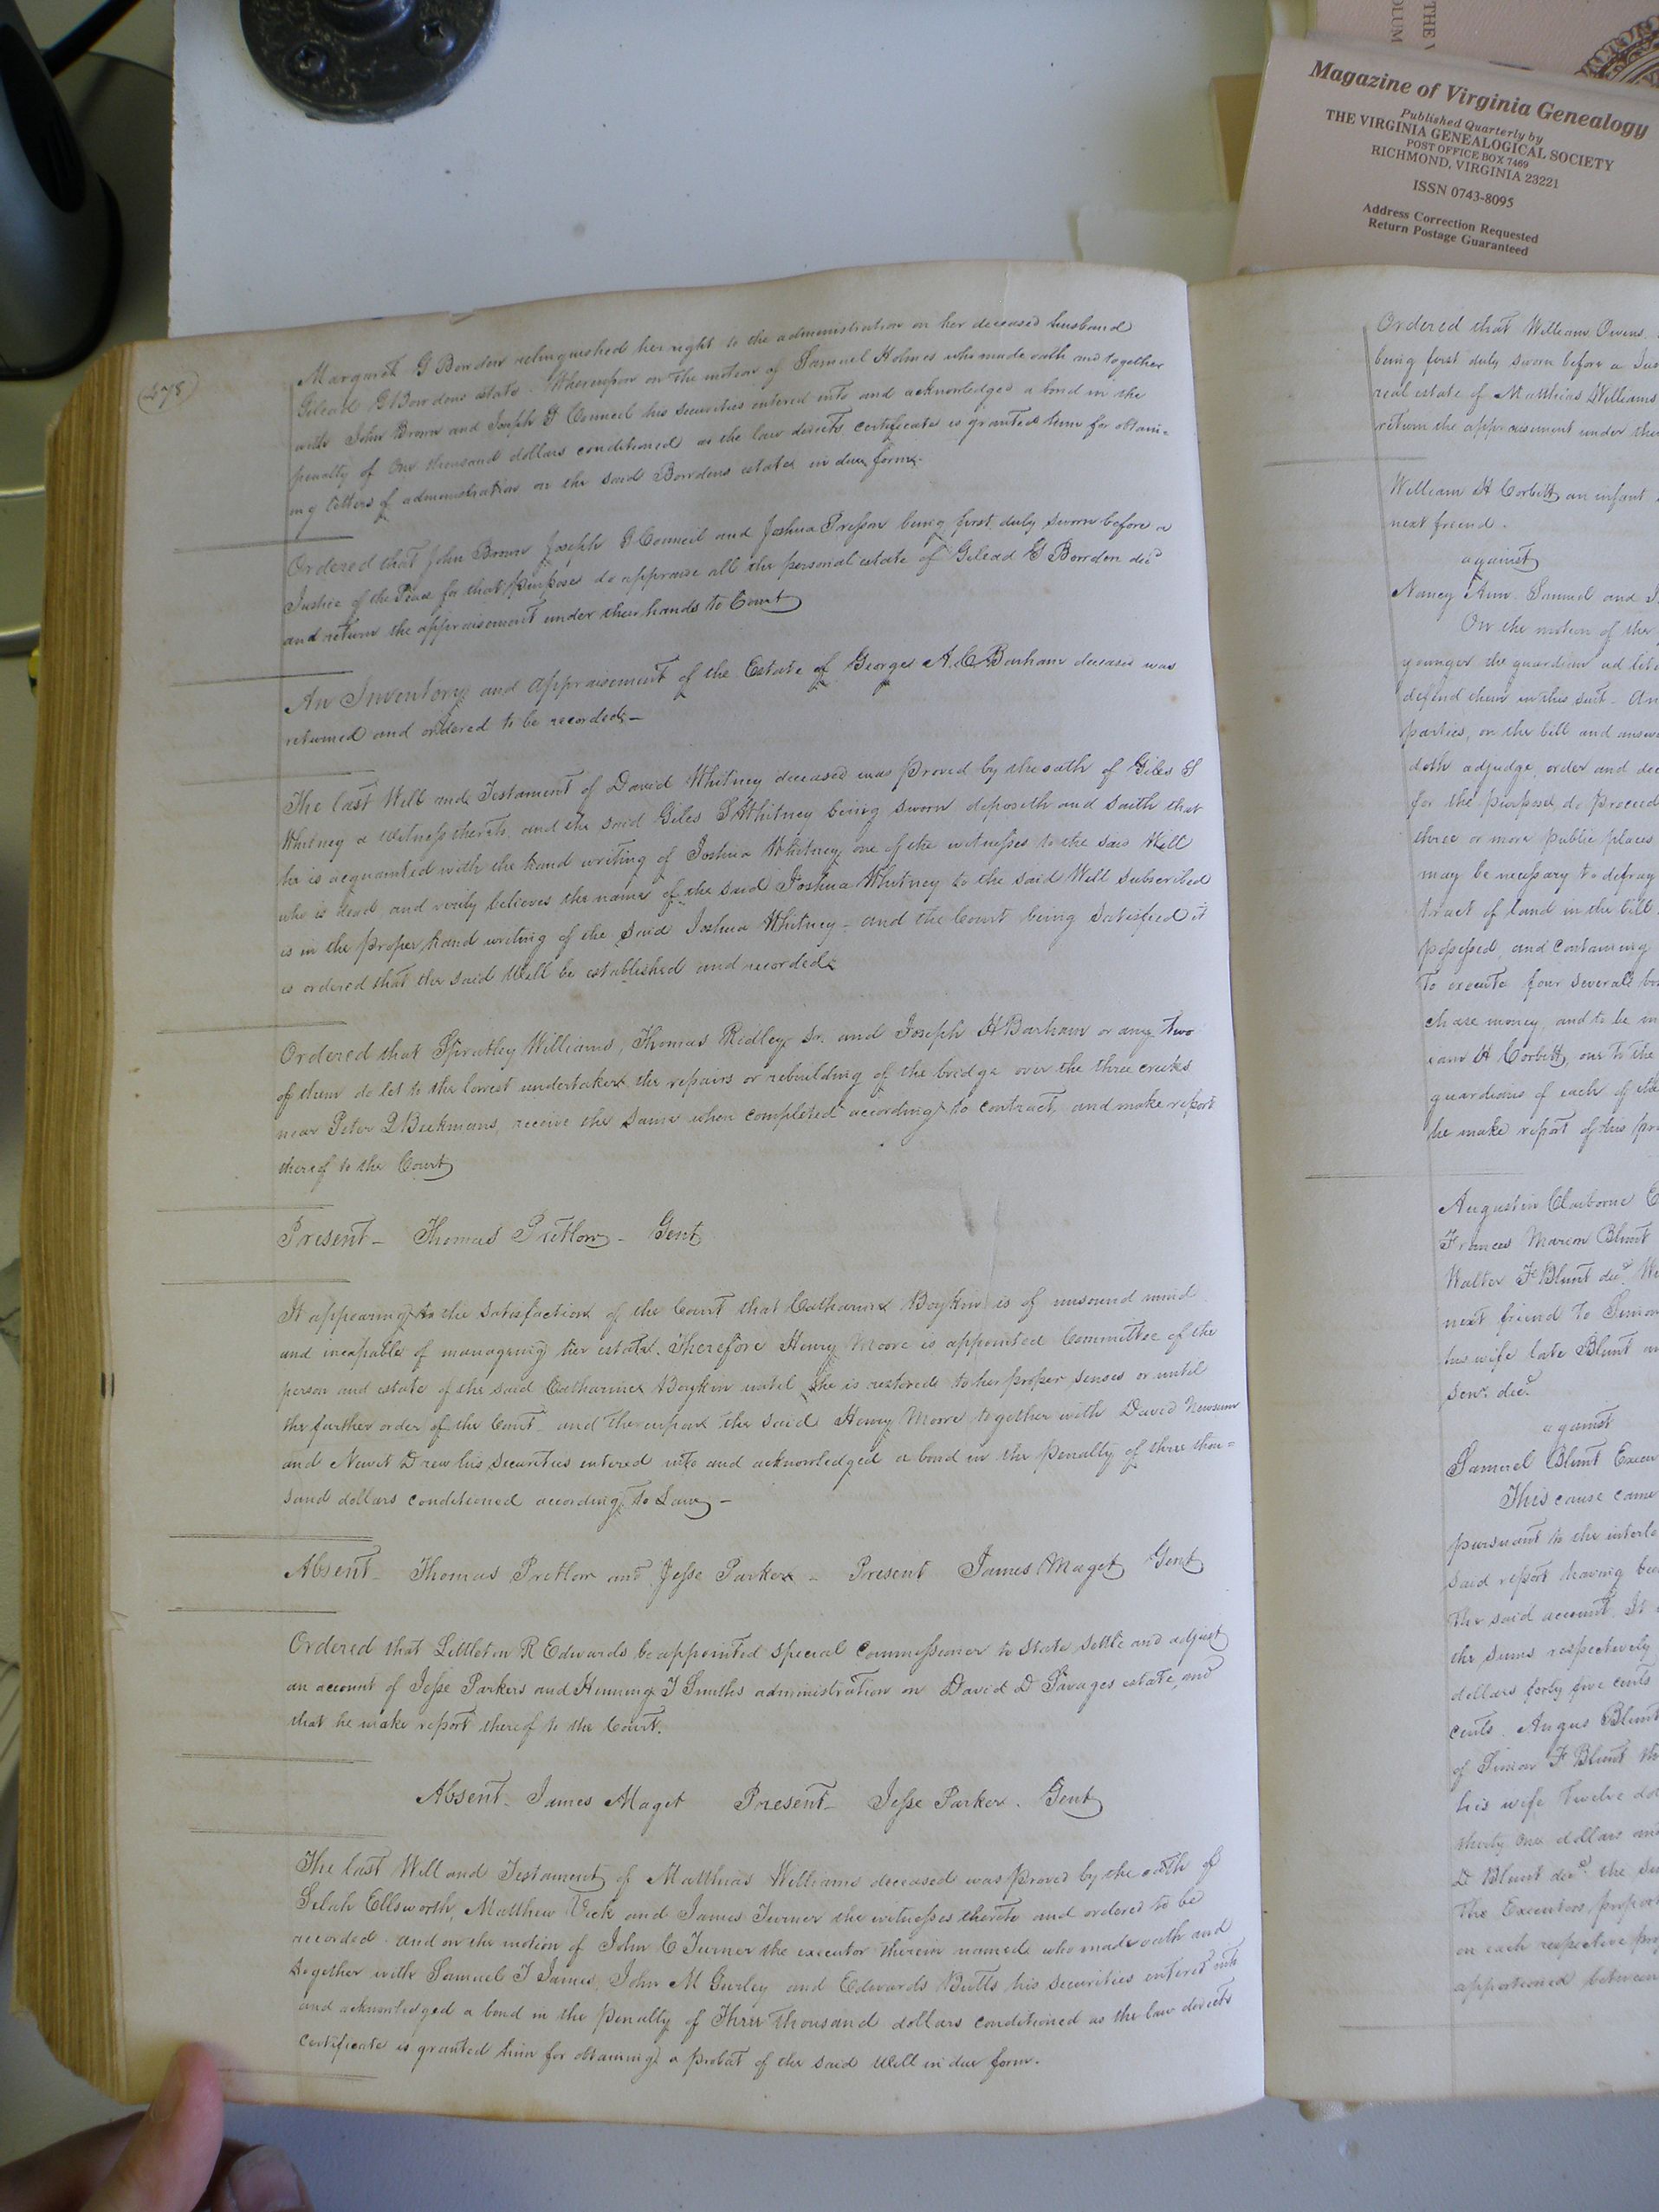 THE V
OLUM
Magazine of Virginia Genealogy
Published Quarterly by
THE VIRGINIA GENEALOGICAL SOCIETY
POST OFFICE BOX 7469
RICHMOND, VIRGINIA 23221
ISSN 0743-8095
Address Correction Requested
Return Postage Guaranteed
278
Margaret G Bowden relinquished her right to the administration on her deceased husband
Gilead G Bowdens estate. Whereupon on the motion of Samuel Holmes who made oath and together
with John Brown and Joseph G Council his securities entered into and acknowledged a bond in the
penalty of One thousand dollars conditioned as the law directs certificate is granted him for obtain-
ing letters of administration on the said Bowdens estate in due form.
Ordered that John Brown Joseph G Council and Joshua Presson being first duly sworn before a
Justice of the Peace for that purpose do appraise all the personal estate of Gilead G Bowden decd
and return the appraisement under their hands to Court
An Inventory and appraisement of the Estate of George A. C Barham deceased was
returned and ordered to be recorded—
The last Will and Testament of David Whitney deceased was proved by the oath of Giles S
Whitney a witness thereto, and the said Giles S Whitney being sworn deposeth and saith that
he is acquainted with the hand writing of Joshua Whitney one of the witnesses to the said Will
who is dead and verily believes the name of the said Joshua Whitney to the said Will subscribed
is in the proper hand writing of the said Joshua Whitney – and the Court being satisfied it
is ordered that the said Will be established and recorded
Ordered that Spratley Williams, Thomas Ridley Sr. and Joseph H Barham or any two
of them do let to the lowest undertaker the repairs or rebuilding of the bridge over the three creeks
near Peter Beekmans, receive the same when completed according to contract, and make report
thereof to the Court
Present – Thomas Pretlow – Gent
It appearing to the satisfaction of the Court that Catharine Boykin is of unsound mind
and incapable of managing her estate. Therefore Henry Moore is appointed Committee of the
person and estate of the said Catharine Boykin until she is restored to her proper senses or until
the further order of the Court and thereupon the said Henry Moore together with David Newsum
and Newit Drew his securities entered into and acknowledged a bond in the penalty of three thou=
sand dollars conditioned according to Law –
Absent – Thomas Pretlow and Jesse Parker – Present James Maget Gent
Ordered that Littleton R Edwards be appointed special Commissioner to State settle and adjust
an account of Jesse Parkers and Henning T Smiths administration on David D Savages estate, and
that he make report thereof to the Court.
Absent – James Maget Present – Jesse Parker. Gent
The last Will and Testament of Matthias Williams deceased was proved by the oath of
Selah Ellsworth, Matthew Vick and James Turner the witnesses thereto and ordered to be
recorded and on the motion of John C Turner the executor therein named who made oath and
together with Samuel T James, John M Gurley and Edwards Butts his securities entered into
and acknowledged a bond in the penalty of Three thousand dollars conditioned as the law directs
certificate is granted him for obtaining a probat of the said Will in due form.
Ordered that William Owens
being first duly sworn before a Jus
real estate of Matthias Williams
return the appraisement under the
William H Corbitt an infant
next friend.
against
Nancy Ann Samuel and
On the motion of the
younger the guardian ad lit
defend them in this suit – An
parties, on the bill and answ
doth adjudge, order and de
for the purpose, do proceed
three or more public places
may be necessary to defray
tract of land in the bill
possessed, and containing
to execute four several bo
chase money, and to be m
iam H Corbitt, one to the
guardians of each of the
he make report of his pr
Augustin Claiborne E
Frances Marion Blunt
Walter F Blunt decd. W
next friend to Simon
his wife late Blunt an
Senr. decd.
against
Samuel Blunt Execu
This cause came
pursuant to the interlo
said report having bee
the said account. It
the sums respectively
dollars forty five cents
cents. Angus Blunt
of Simon F Blunt th
his wife Twelve dol
thirty one dollars and
D Blunt decd. the su
The Executors proport
on each respective pro
apportioned between